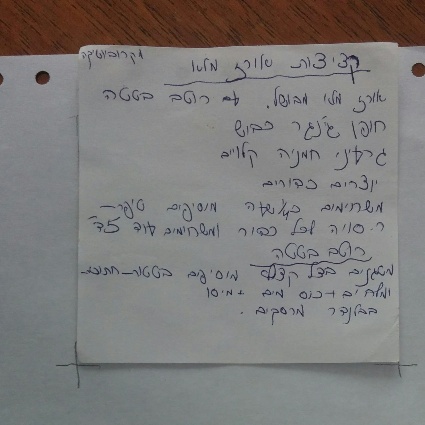 מקרוביוטיקה
קציצות אורז מלא
אורז מלא מבושל. עם רוטב בטטה
חופן ג'נג'ר כבוש
גרעיני חמניה קלויים
יוצרים כדורים
משחימים מוסיפים טיפ־
ר. סויה לכל כדור ומשחימים עוד 5 ד'
רוטב בטטה
מטגנים בצל מוסיפים בטטה־חתוכה־
ומלח + כוס מים + מיסו
בבלנדר מרסקים.